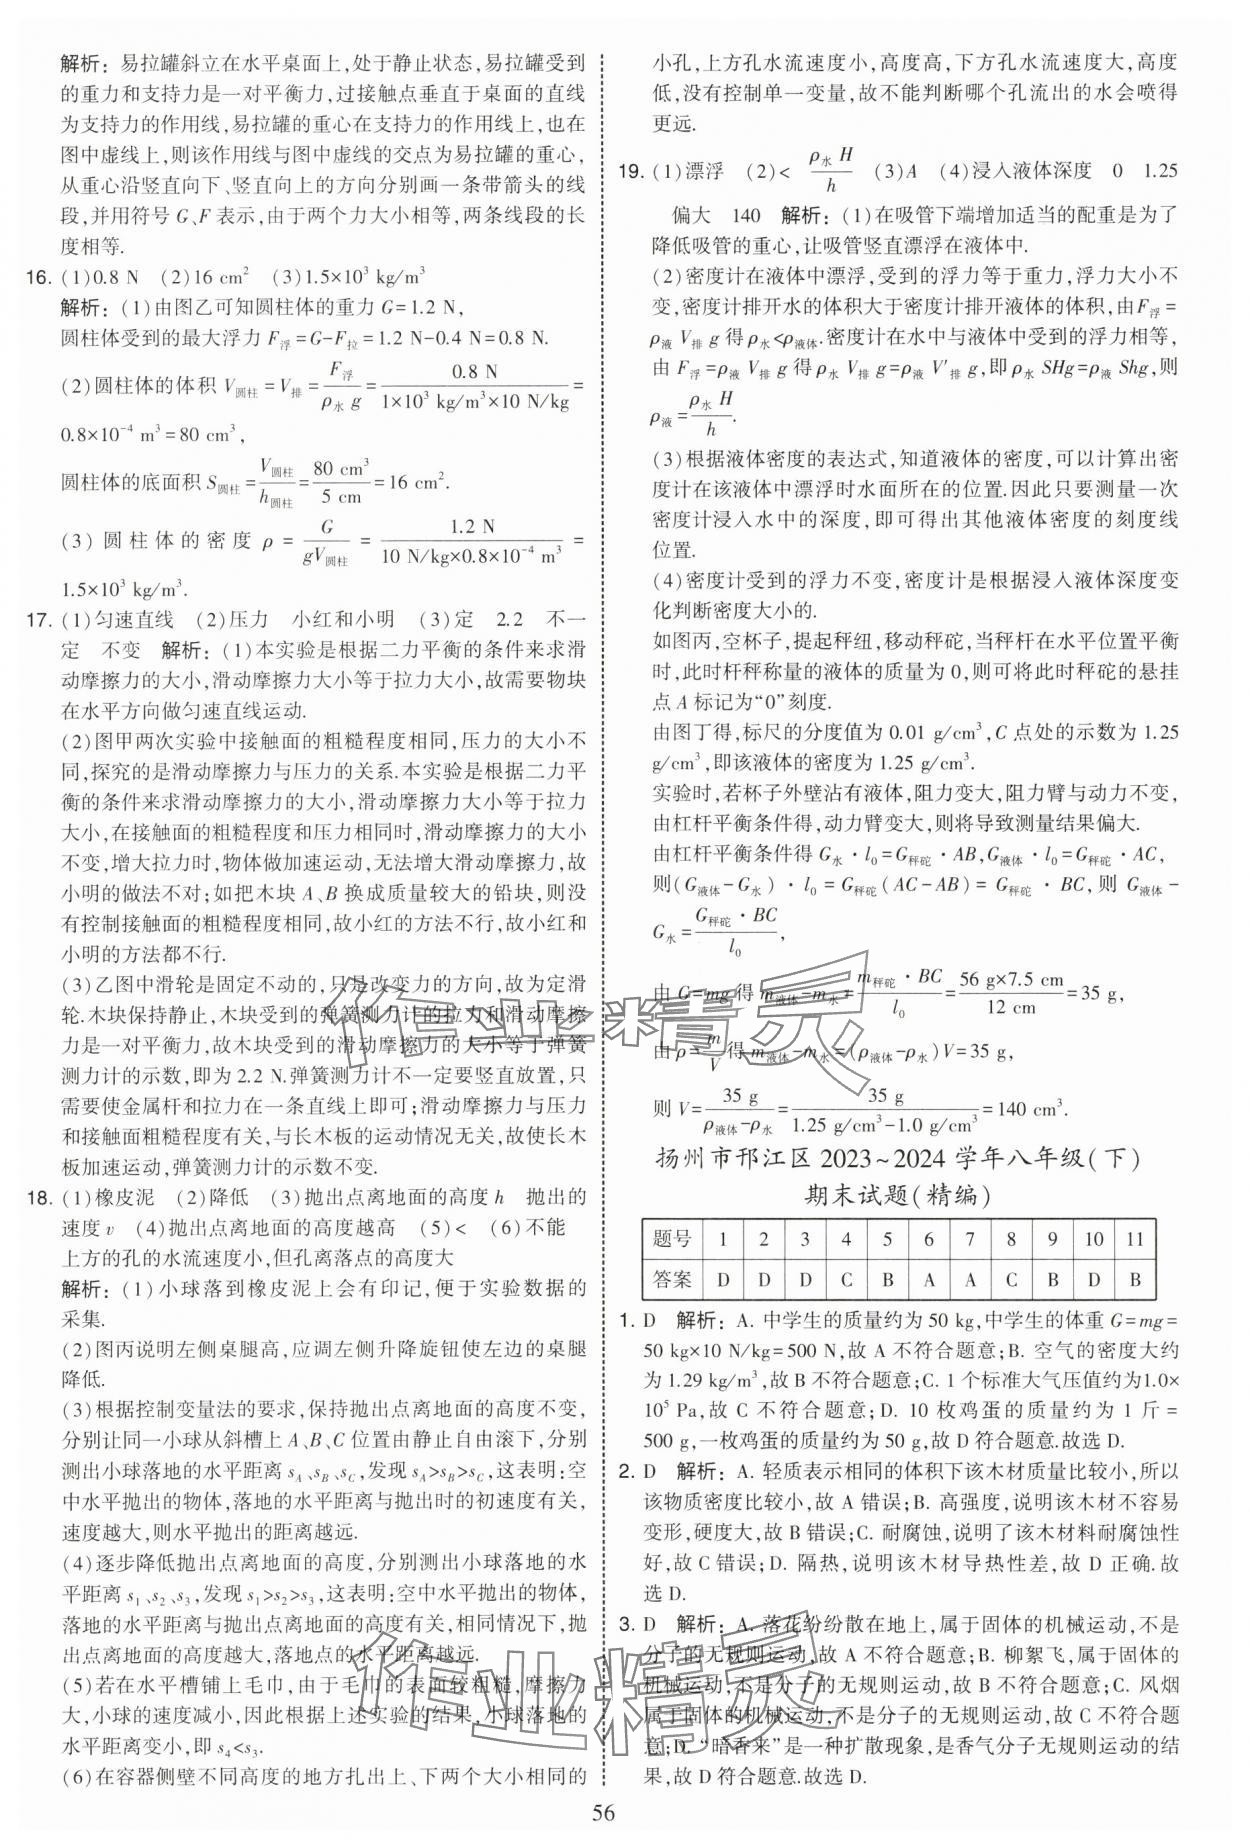 解析:易拉罐斜立在水平桌面上,处于静止状态,易拉罐受到
的重力和支持力是一对平衡力,过接触点垂直于桌面的直线
为支持力的作用线,易拉罐的重心在支持力的作用线上,也在
图中虚线上,则该作用线与图中虚线的交点为易拉罐的重心,
从重心沿竖直向下、竖直向上的方向分别画一条带箭头的线
段,并用符号 G、F 表示,由于两个力大小相等,两条线段的长
度相等.
16. (1)0.8 N (2)16 cm² (3)1.5×10³ kg/m³
解析:(1)由图乙可知圆柱体的重力 G=1.2 N,
圆柱体受到的最大浮力 F浮=G-F拉=1.2 N-0.4 N=0.8 N.
(2)圆柱体的体积 V圆柱=V排=F浮/(ρ水 g)=0.8 N/(1×10³ kg/m³×10 N/kg)=
0.8×10⁻⁴ m³=80 cm³,
圆柱体的底面积 S圆柱=V圆柱/h圆柱=80 cm³/5 cm=16 cm².
(3)圆柱体的密度 ρ=G/(gV圆柱)=1.2 N/(10 N/kg×0.8×10⁻⁴ m³)=
1.5×10³ kg/m³.
17. (1)匀速直线 (2)压力 小红和小明 (3)定 2.2 不一
定 不变 解析:(1)本实验是根据二力平衡的条件来求滑
动摩擦力的大小,滑动摩擦力大小等于拉力大小,故需要物块
在水平方向做匀速直线运动.
(2)图甲两次实验中接触面的粗糙程度相同,压力的大小不
同,探究的是滑动摩擦力与压力的关系.本实验是根据二力平
衡的条件来求滑动摩擦力的大小,滑动摩擦力大小等于拉力
大小,在接触面的粗糙程度和压力相同时,滑动摩擦力的大小
不变,增大拉力时,物体做加速运动,无法增大滑动摩擦力,故
小明的做法不对;如把木块 A、B 换成质量较大的铅块,则没
有控制接触面的粗糙程度相同,故小红的方法不行,故小红和
小明的方法都不行.
(3)乙图中滑轮是固定不动的,只是改变力的方向,故为定滑
轮.木块保持静止,木块受到的弹簧测力计的拉力和滑动摩擦
力是一对平衡力,故木块受到的滑动摩擦力的大小等于弹簧
测力计的示数,即为 2.2 N.弹簧测力计不一定要竖直放置,只
需要使金属杆和拉力在一条直线上即可;滑动摩擦力与压力
和接触面粗糙程度有关,与长木板的运动情况无关,故使长木
板加速运动,弹簧测力计的示数不变.
18. (1)橡皮泥 (2)降低 (3)抛出点离地面的高度 h 抛出的
速度 v (4)抛出点离地面的高度越高 (5)< (6)不能
上方的孔的水流速度小,但孔离落点的高度大
解析:(1)小球落到橡皮泥上会有印记,便于实验数据的
采集.
(2)图丙说明左侧桌腿高,应调左侧升降旋钮使左边的桌腿
降低.
(3)根据控制变量法的要求,保持抛出点离地面的高度不变,
分别让同一小球从斜槽上 A、B、C 位置由静止自由滚下,分别
测出小球落地的水平距离 sA、sB、sC,发现 sA>sB>sC,这表明:空
中水平抛出的物体,落地的水平距离与抛出时的初速度有关,
速度越大,则水平抛出的距离越远.
(4)逐步降低抛出点离地面的高度,分别测出小球落地的水
平距离 s₁、s₂、s₃,发现 s₁>s₂>s₃,这表明:空中水平抛出的物体,
落地的水平距离与抛出点离地面的高度有关,相同情况下,抛
出点离地面的高度越大,落地点的水平距离越远.
(5)若在水平槽铺上毛巾,由于毛巾的表面较粗糙,摩擦力
大,小球的速度减小,因此根据上述实验的结果,小球落地的
水平距离变小,即 s₄<s₃.
(6)在容器侧壁不同高度的地方扎出上、下两个大小相同的
小孔,上方孔水流速度小,高度高,下方孔水流速度大,高度
低,没有控制单一变量,故不能判断哪个孔流出的水会喷得
更远.
19. (1)漂浮 (2)< ρ水 H/h (3)A (4)浸入液体深度 0 1.25
偏大 140 解析:(1)在吸管下端增加适当的配重是为了
降低吸管的重心,让吸管竖直漂浮在液体中.
(2)密度计在液体中漂浮,受到的浮力等于重力,浮力大小不
变,密度计排开水的体积大于密度计排开液体的体积,由 F浮=
ρ液 V排 g 得 ρ水<ρ液体.密度计在水中与液体中受到的浮力相等,
由 F浮=ρ液 V排 g 得 ρ水 V排 g=ρ液 V′排 g,即 ρ水 SHg=ρ液 Shg,则
ρ液=ρ水 H/h.
(3)根据液体密度的表达式,知道液体的密度,可以计算出密
度计在该液体中漂浮时水面所在的位置.因此只要测量一次
密度计浸入水中的深度,即可得出其他液体密度的刻度线
位置.
(4)密度计受到的浮力不变,密度计是根据浸入液体深度变
化判断密度大小的.
如图丙,空杯子,提起秤纽,移动秤砣,当秤杆在水平位置平衡
时,此时杆秤称量的液体的质量为 0,则可将此时秤砣的悬挂
点 A 标记为“0”刻度.
由图丁得,标尺的分度值为 0.01 g/cm³,C 点处的示数为 1.25
g/cm³,即该液体的密度为 1.25 g/cm³.
实验时,若杯子外壁沾有液体,阻力变大,阻力臂与动力不变,
由杠杆平衡条件得,动力臂变大,则将导致测量结果偏大.
由杠杆平衡条件得 G水·l₀=G秤砣·AB,G液体·l₀=G秤砣·AC,
则(G液体-G水)·l₀=G秤砣(AC-AB)=G秤砣·BC,则 G液体-
G水=G秤砣·BC/l₀,
由 G=mg 得 m液体-m水=m秤砣·BC/l₀=56 g×7.5 cm/12 cm=35 g,
由 ρ=m/V 得 m液体-m水=(ρ液体-ρ水)V=35 g,
则 V=35 g/(ρ液体-ρ水)=35 g/(1.25 g/cm³-1.0 g/cm³)=140 cm³.
扬州市邗江区 2023~2024 学年八年级(下)
期末试题(精编)
题号 1 2 3 4 5 6 7 8 9 10 11
答案 D D D C B A A C B D B
1. D 解析:A. 中学生的质量约为 50 kg,中学生的体重 G=mg=
50 kg×10 N/kg=500 N,故 A 不符合题意;B. 空气的密度大约
为 1.29 kg/m³,故 B 不符合题意;C. 1 个标准大气压值约为1.0×
10⁵ Pa,故 C 不符合题意;D. 10 枚鸡蛋的质量约为 1 斤=
500 g,一枚鸡蛋的质量约为 50 g,故 D 符合题意.故选 D.
2. D 解析:A. 轻质表示相同的体积下该木材质量比较小,所以
该物质密度比较小,故 A 错误;B. 高强度,说明该木材不容易
变形,硬度大,故 B 错误;C. 耐腐蚀,说明了该木材料耐腐蚀性
好,故 C 错误;D. 隔热,说明该木材导热性差,故 D 正确.故
选 D.
3. D 解析:A. 落花纷纷散在地上,属于固体的机械运动,不是
分子的无规则运动,故 A 不符合题意;B. 柳絮飞,属于固体的
机械运动,不是分子的无规则运动,故 B 不符合题意;C. 风烟
属于固体的机械运动,不是分子的无规则运动,故 C 不符合题
意;D. “暗香来”是一种扩散现象,是香气分子无规则运动的结
果,故 D 符合题意.故选 D.
作业精灵
作业精灵
56